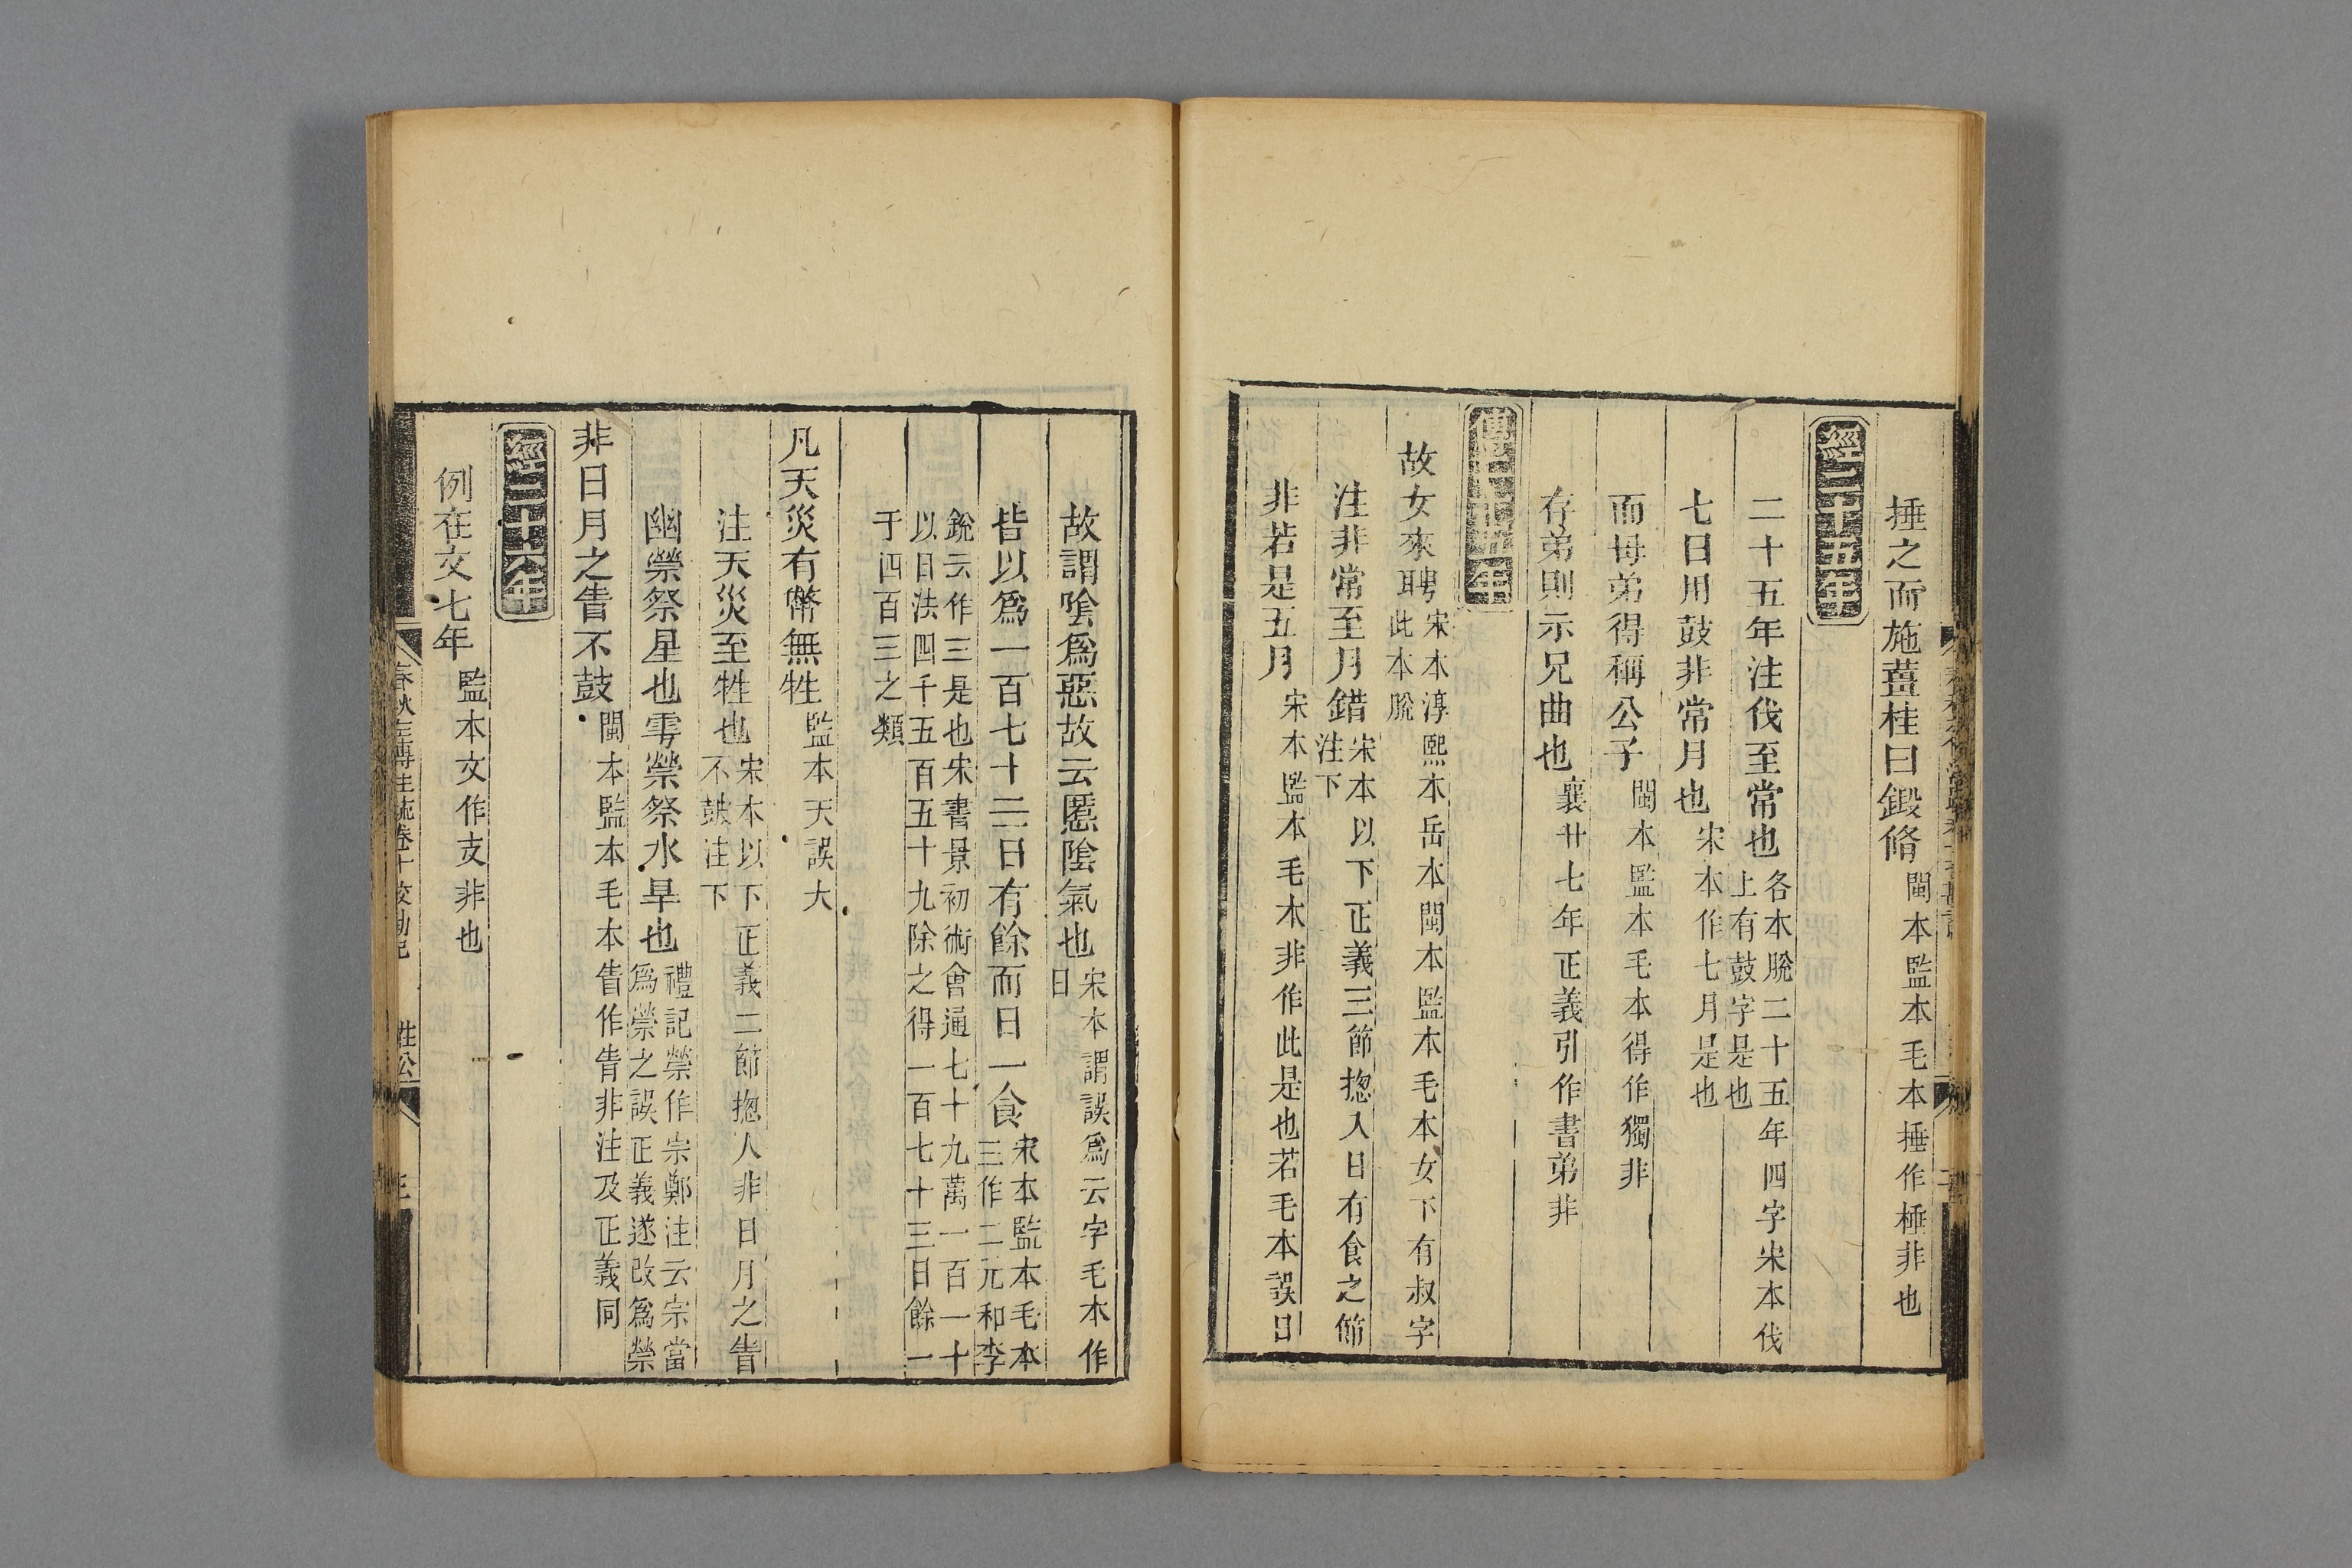 捶之而施薑桂曰鍛脩閩本監本毛本捶作棰非也
經二十五年
二十五年注伐至常也各本脫二十五年四字宋本伐上有鼓字是也
七日用鼓非常月也宋本作七月是也
而母弟得稱公子閩本監本毛本得作獨非
存弟則示兄曲也襄廿七年正義引作書弟非
傳二十五年
故女來聘宋本淳熙本岳本閩本監本毛本女下有叔字此本脫
注非常至月錯宋本以下正義三節揔入日有食之節注下
非若是五月宋本監本毛本非作此是也若毛本誤日
故謂陰爲惡故云慝陰氣也宋本謂誤爲云字毛本作曰
皆以爲一百七十三日有餘而日一食宋本監本毛本三作二元和李
銳云作三是也宋書景初術會通七十九萬一百一十
以日法四千五百五十九除之得一百七十三日餘一
于四百三之類
凡天災有幣無牲監本天誤大
注天災至牲也宋本以下正義二節揔入非日月之眚不鼓注下
幽禜祭星也雩禜祭水旱也禮記禜作宗鄭注云宗當爲禜之誤正義遂改爲禜
非日月之眚不鼓閩本監本毛本眚作眚非注及正義同
經二十六年
例在文七年監本文作支非也
春秋左傳注疏卷十校勘記　莊公